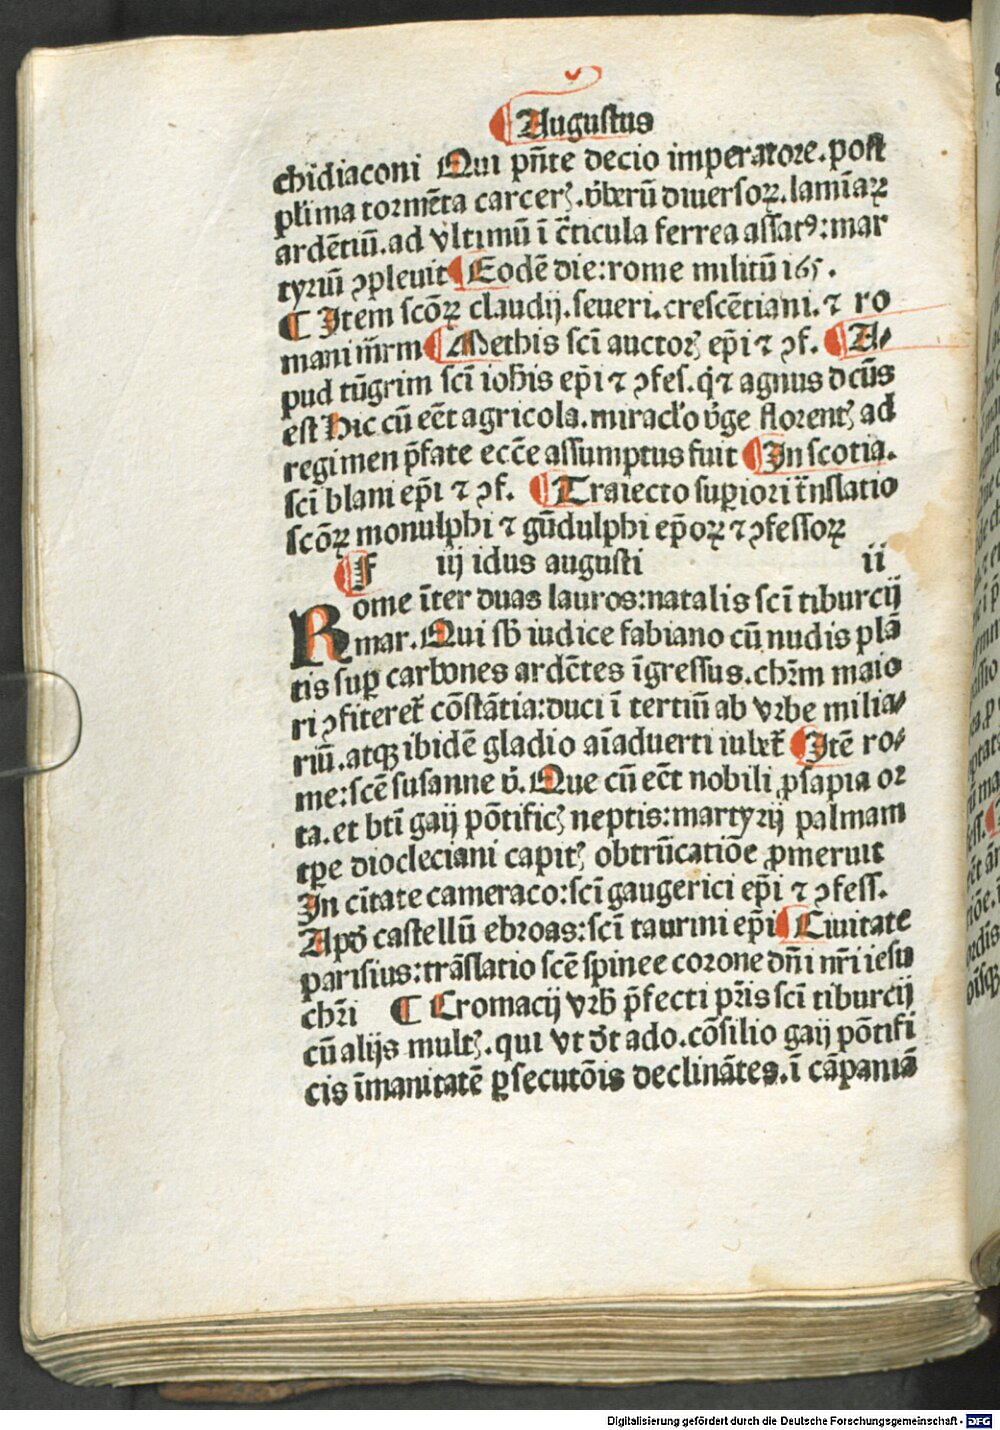 ¶ Augustus
chidiaconi Qui pñte decio imperatore. post
plima tormẽta carcerꝫ. v̾berũ diuersoꝝ. lamiaꝝ
ardẽtiũ. ad vltimũ ĩ c̃ticula ferrea assatꝰ: mar
tyriũ ꝯpleuit ¶ Eodẽ die: rome militũ 165.
¶ Item scõꝝ claudij. seueri. crescẽtiani. ⁊ ro
mani m̃rm ¶ Methis scĩ auctorꝫ ep̃i ⁊ ꝯf. ¶ A⸗
pud tũgrim scĩ ioh̃is ep̃i ⁊ ꝯfes. q̇ ⁊ agnus dcũs
est Hic cũ eẽt agricola. miracl'o v̾ge florentꝫ ad
regimen p̃fate ecc̃e assumptus fuit ¶ In scotia.
scĩ blani ep̃i ⁊ ꝯf. ¶ Traiecto suꝑiori t̃nslatio
scõꝝ monulphi ⁊ gũdulphi ep̃oꝝ ⁊ ꝯfessoꝝ
¶ f iij idus augusti ii
Rome ĩter duas lauros: natalis scĩ tiburcij
mar. Qui sb̾ iudice fabiano cũ nudis plã
tis suꝑ carbones ardẽtes ĩgressus. chr̃m maio
ri ꝯfiteret̃ cõstãtia: duci ĩ tertiũ ab vrbe milia⸗
riũ. atqꝫ ibidẽ gladio aĩaduerti iubet̃ ¶ Itẽ ro⸗
me: scẽ susanne v̾. Que cũ eẽt nobili ꝓsapia or
ta. et bt̃i gaij põtificꝫ neptis: martyrij palmam
tꝑe diocleciani capitꝫ obtrũcatiõe ꝓmeruit
In ciĩtate cameraco: scĩ gaugerici ep̃i ⁊ ꝯfess.
Apd̾ castellũ ebroas: scĩ taurini ep̃i ¶ Ciuitate
parisius: trãslatio scẽ spinee corone dñi nr̃i iesu
chr̃i ¶ Cromacij vrb̾ p̃fecti pr̃is scĩ tiburcij
cũ alijs multꝫ. qui vt d̾t ado. cõsilio gaij põtifi
cis ĩmanitatẽ ꝑsecutõis declinãtes. ĩ cãpaniã
Digitalisierung gefördert durch die Deutsche Forschungsgemeinschaft - DFG